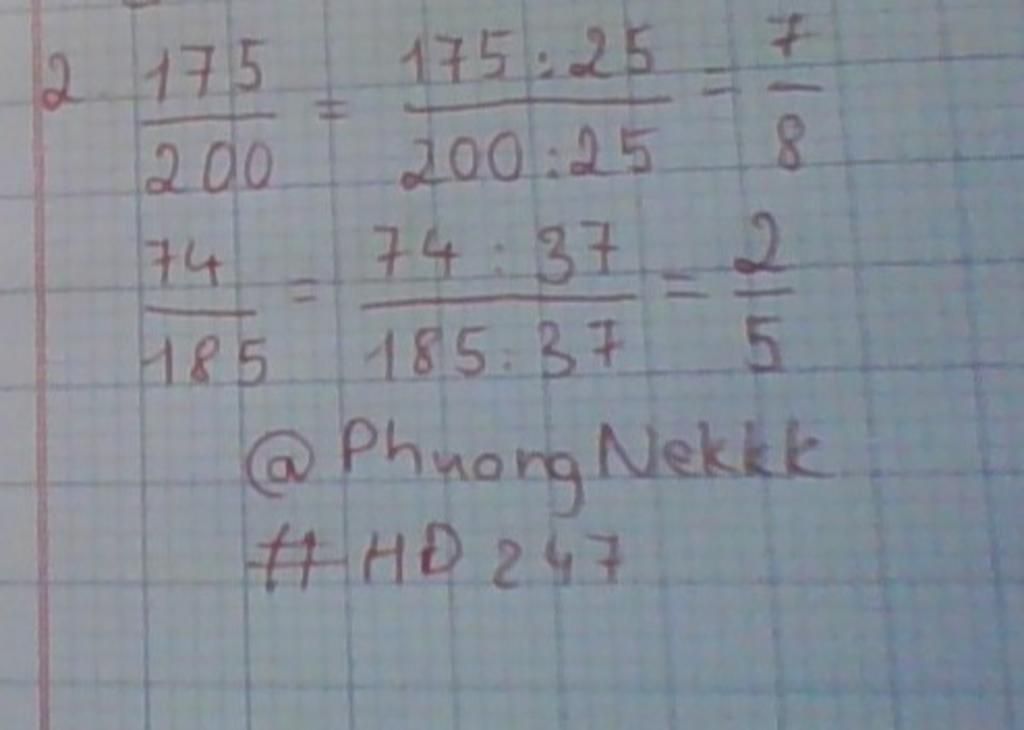 2 175/200 = 175:25/200:25 = 7/8
74/185 = 74:37/185:37 = 2/5
@PhuongNekkk
#HD247